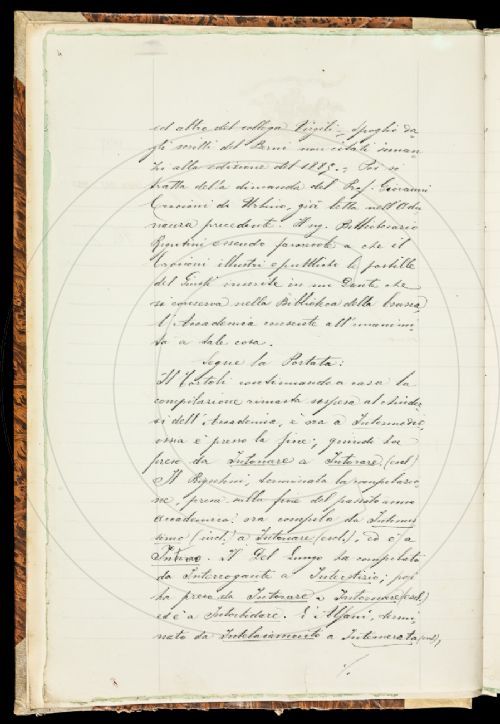 ed altre del collega Virgili, spoglio da-
gli scritti del Berni non citati innan-
zi alla edizione del 1885. Poi si
tratta della dimanda del Prof. Giovanni
Crocioni da Urbino, già letta nell'Adu-
nanza precedente. Il sig. Bibliotecario
Rigutini essendo favorevole a che il
Crocioni illustri e pubblichi le postille
del Giusti inserite in un Dante che
si conserva nella Biblioteca della Crusca,
l'Accademia consente all'unanimi-
tà a tale cosa.
Segue la Portata:
Il Tortoli continuando a casa la
compilazione rimasta sospesa al chiuder-
si dell'Accademia, è ora a Intermedio,
ossia è presso la fine; quindi ha
preso da Intonare a Intorare (escl.)
Il Rigutini, terminata la compilazio-
ne, presa sulla fine del passato anno
accademico: ora compila da
(incl.) a Intonare (escl.), ed è a
Il Del Lungo ha compilato
da Interrogante a Interstizio; poi
ha preso da Intorare a (escl.)
ed è a Intorbidare. E l'Alfani, termi-
nato da a Intemerata (escl.),
./.